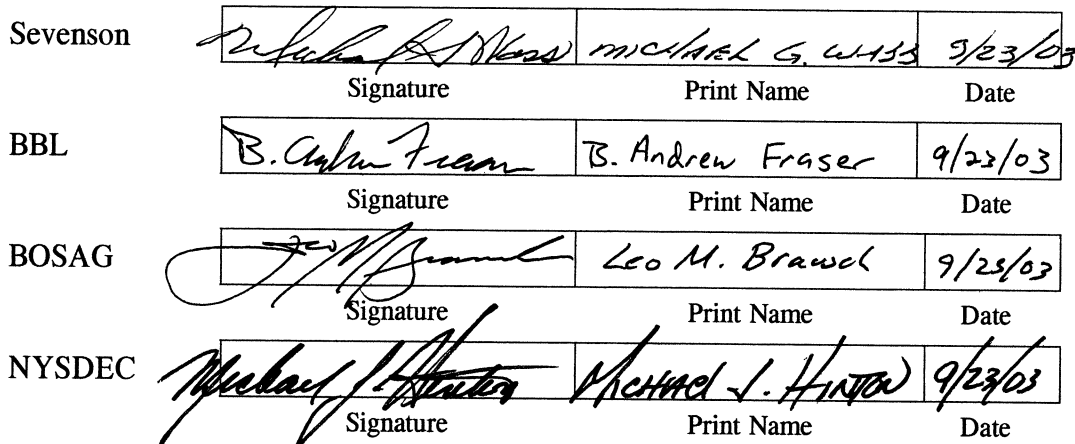 Sevenson MICHAEL G. 9/23/03
Signature Print Name Date
BBL B. Andrew Fraser B. Andrew Fraser 9/23/03
Signature Print Name Date
BOSAG Leo M. Leo M. 9/23/03
Signature Print Name Date
NYSDEC Michael J. Hinton MICHAEL J. HINTON 9/23/03
Signature Print Name Date